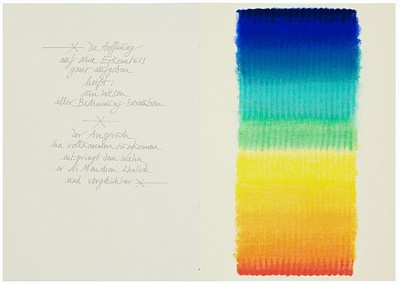 Die Hoffnung
auf eine Erkenntnis
ganz aufgeben
heißt:
sein Wesen
aller Bestimmung berauben
Der Anspruch
ihn vollkommen zu erkennen
entspringt dem Wahn
er sei Menschen ähnlich
und vergleichbar